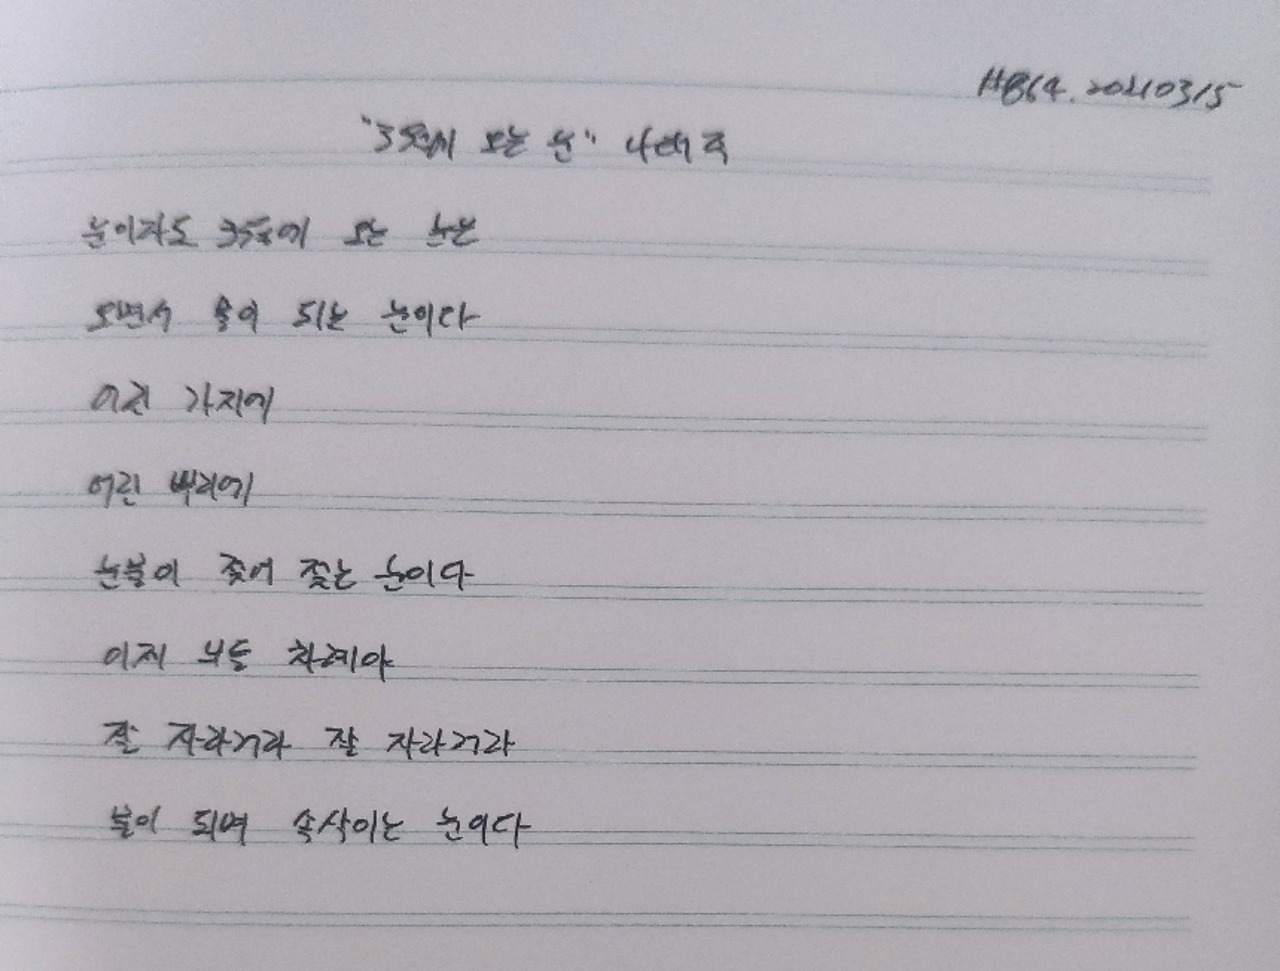 HB64. 20210315
"3월에 오는 눈" 나태주
눈이라도 3월에 오는 눈은
오면서 물이 되는 눈이다
어린 가지에
어린 뿌리에
눈물이 젖어 젖는 눈이다
이제 너들 차례야
잘 자라거라 잘 자라거라
물이 되며 속삭이는 눈이다